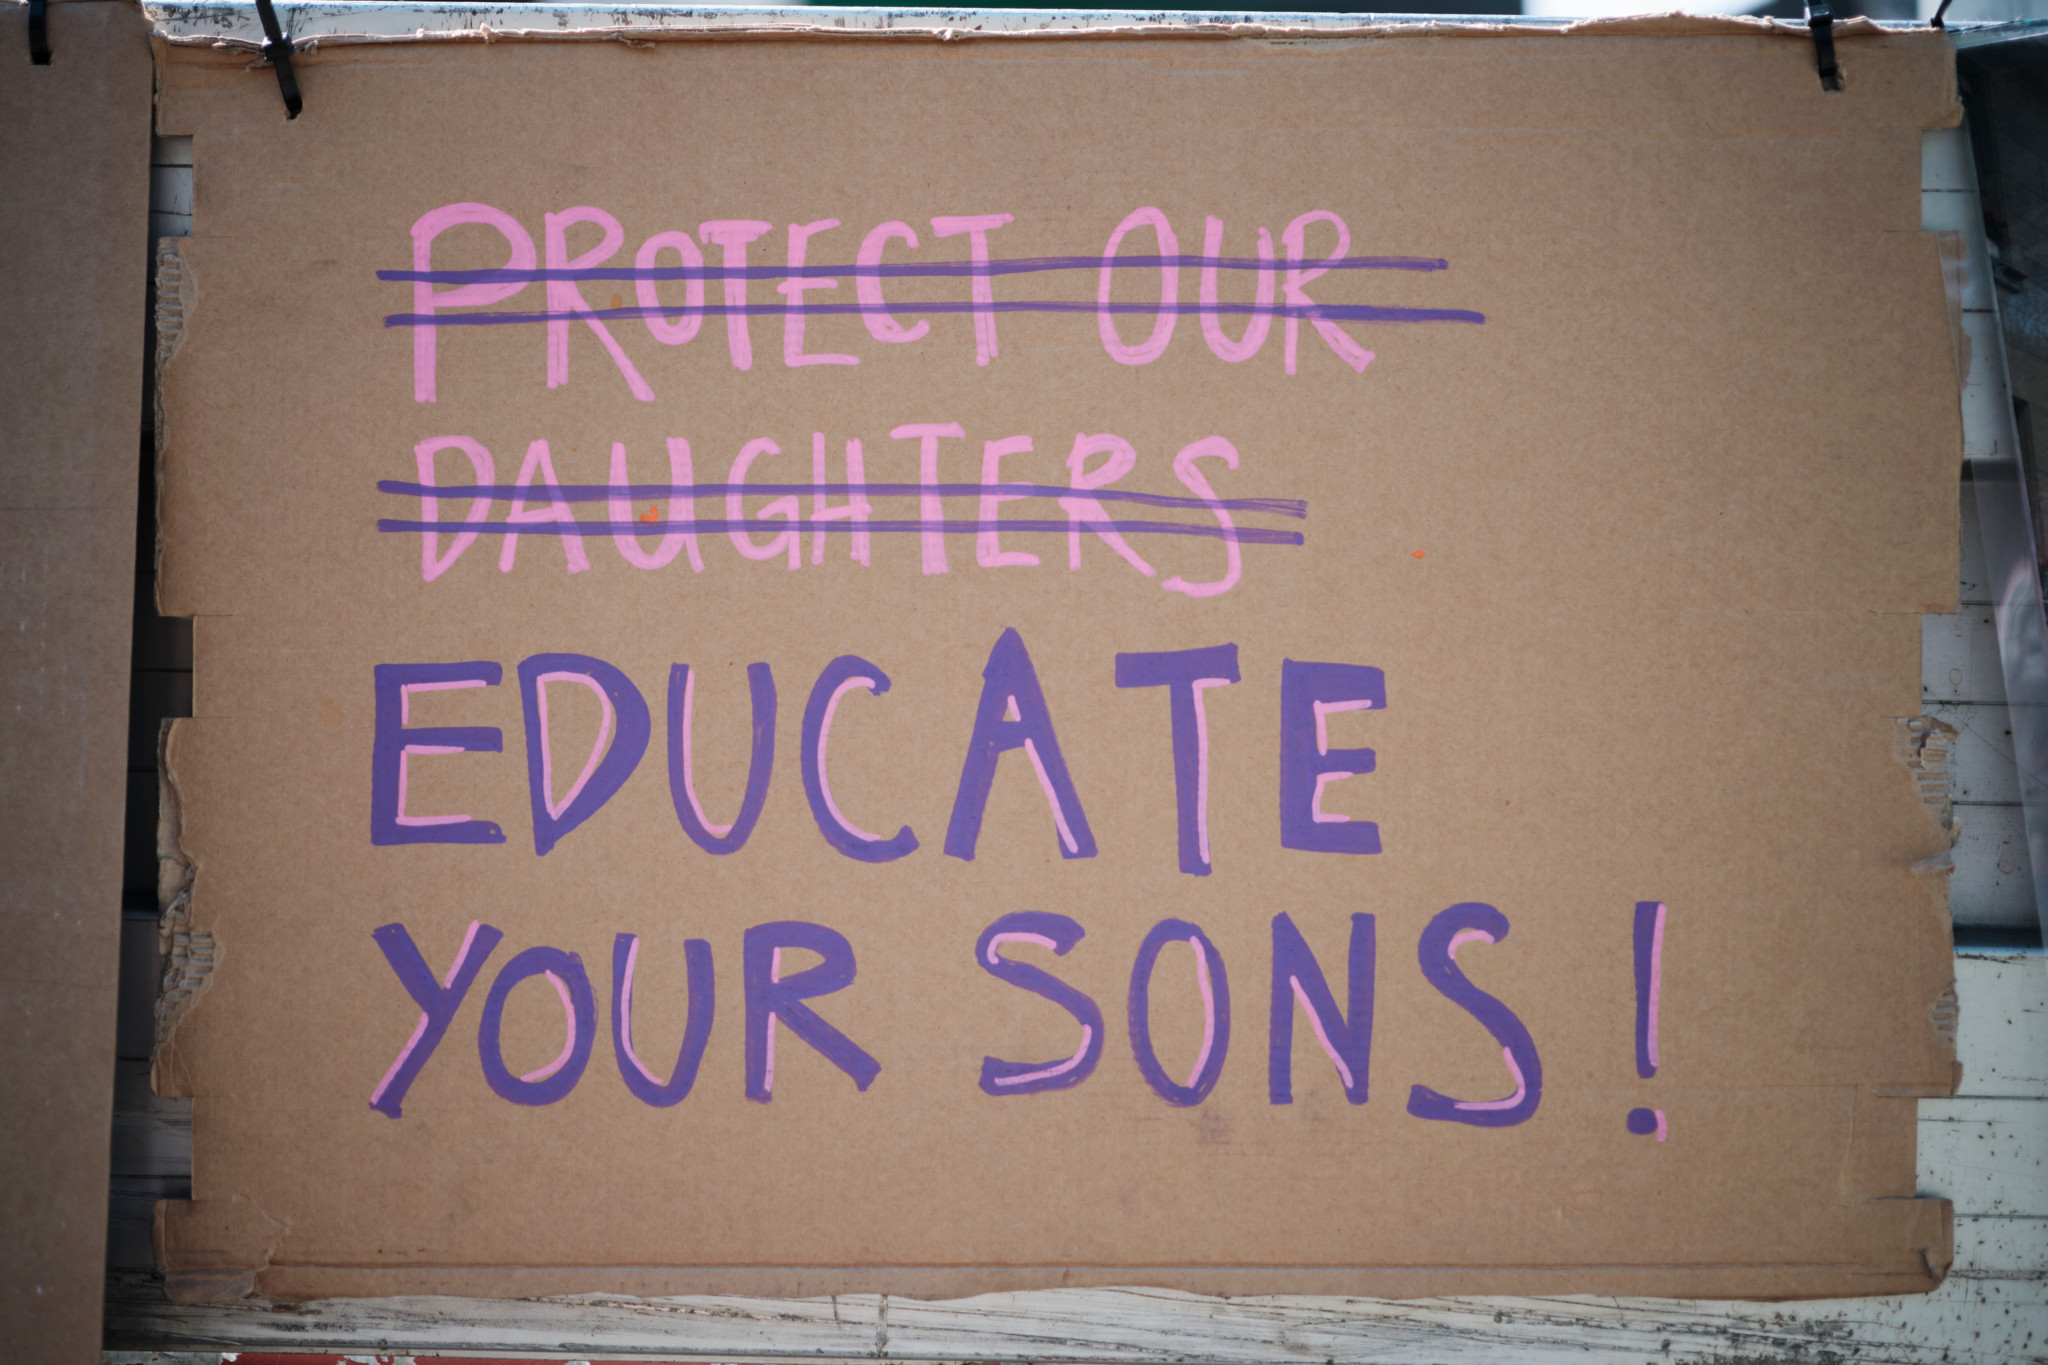 PROTECT OUR
DAUGHTERS
EDUCATE
YOUR SONS!